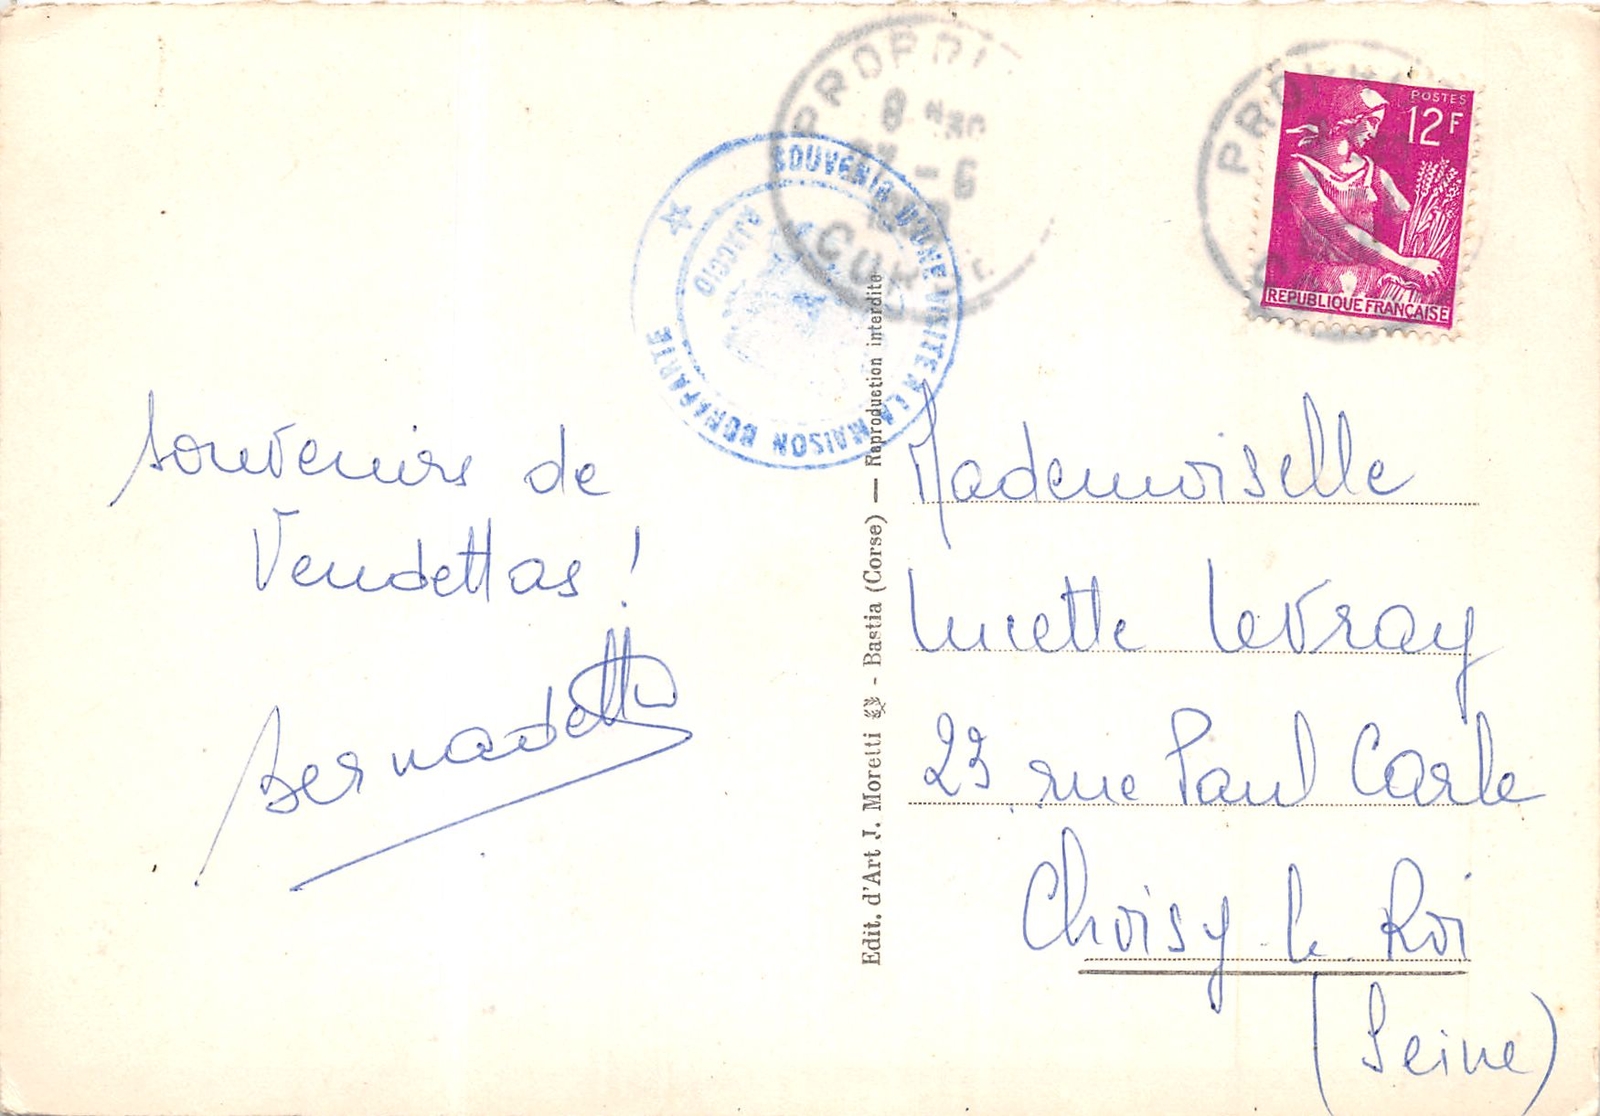 souvenirs de
Vendettas !
Bernadette
SOUVENIR D'UNE VISITE A LA MAISON BONAPARTE
AJACCIO
PROPRI
8 H30
- 6
Edit. d'Art J. Moretti - Bastia (Corse) — Reproduction interdite
POSTES
12F
REPUBLIQUE FRANÇAISE
Mademoiselle
Lucette Levray
23 rue Paul Carle
Choisy le Roi
(Seine)